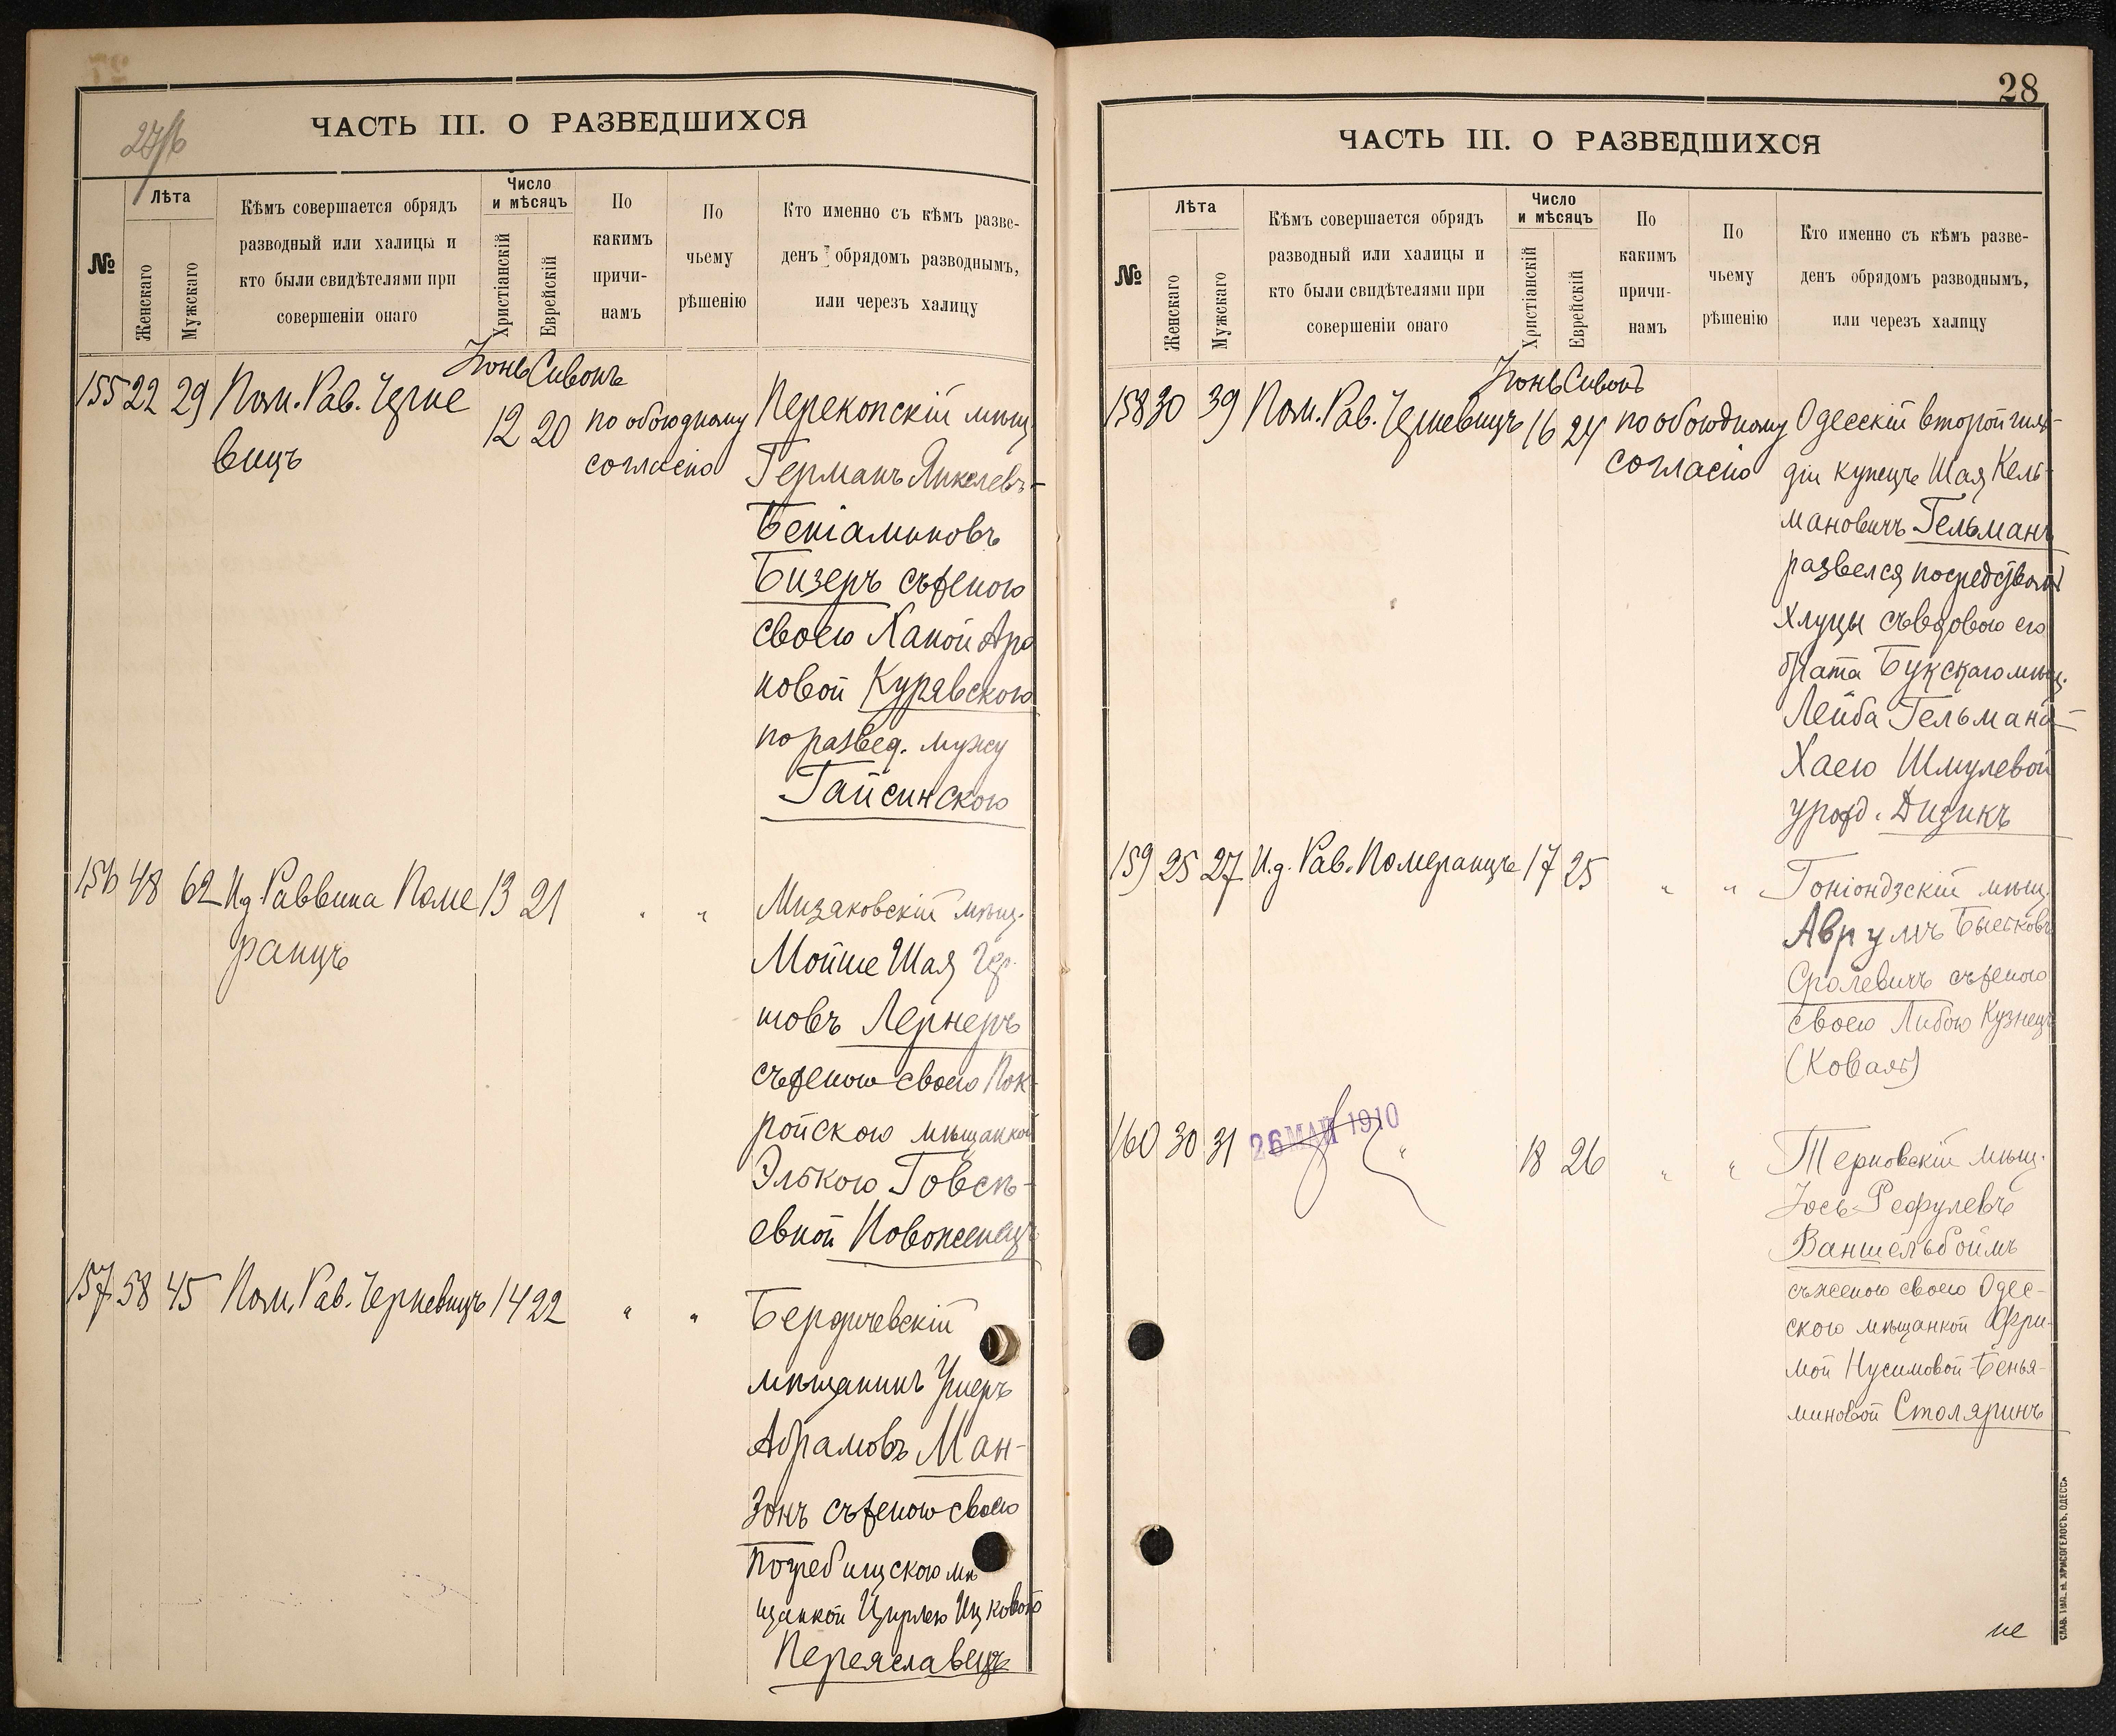 ЧАСТЬ III. О РАЗВЕДШИХСЯ
№
Лѣта
Женскаго
Мужскаго
Кѣмъ совершается обрядъ
разводный или халицы и
кто были свидѣтелями при
совершеніи онаго
Число
и мѣсяцъ
Христіанскій
Еврейскій
По
какимъ
причи-
намъ
По
чьему
рѣшенію
Кто именно съ кѣмъ разве-
денъ обрядомъ разводнымъ,
или черезъ халицу
Іюнь Сивонъ
155 22 29 Пом. Рав. Черне
вицъ
12 20 по обоюдному
согласію
Перекопскій мѣщ.
Германъ Янкелевъ-
Беніаминовъ
Бизеръ съ женою
своею Ханой Аро
новой Курявскою
по развед. мужу
Гайсинскою
156 48 62 И д Раввина Поме 13 21 " "
ранцъ
Мизяковскій мѣщ.
Мойше Шая Гер
шовъ Лернеръ
съ женою своею Пок-
ройскою мѣщанкой
Элькою Говсѣ-
евной Новоженецъ
157 58 45 Пом. Рав. Черневицъ 14 22 " "
Бердичевскій
мѣщанинъ Ушеръ
Абрамовъ Ман-
зонъ съ женою своею
Погребищскою мѣ
щанкой Цирлею Ицковой
Переяславецъ
28
ЧАСТЬ III. О РАЗВЕДШИХСЯ
№
Лѣта
Женскаго
Мужскаго
Кѣмъ совершается обрядъ
разводный или халицы и
кто были свидѣтелями при
совершеніи онаго
Число
и мѣсяцъ
Христіанскій
Еврейскій
По
какимъ
причи-
намъ
По
чьему
рѣшенію
Кто именно съ кѣмъ разве-
денъ обрядомъ разводнымъ,
или черезъ халицу
Іюнь Сивонъ
158 30 39 Пом. Рав. Черневицъ 16 24 по обоюдному
согласію
Одесскій второй гиль-
діи купецъ Шая Кель-
мановичъ Гельманъ
развелся посредствомъ
Хлуцы съ вдовою его
брата Букскаго мѣщ.
Лейба Гельмана-
Хаею Шмулевой
урожд. Дизикъ
159 25 27 И.д. Рав. Померанцъ 17 25 " "
Гоніондзскій мѣщ.
Аврумъ Бытковъ
Сролевичъ съ женою
своею Либою Кузнецъ
(Коваль)
160 30 31 " 18 26 " "
26 МАЙ 1910
Терновскій мѣщ.
Іось Рефулевъ
Ваншельбоймъ
съ женою своею Одес-
скою мѣщанкой Фри-
мой Нусимовой-Бенья-
миновой Столяринъ
СЛАВ. ТИП. Н. ХРИСОГЕЛОСЪ, ОДЕССА